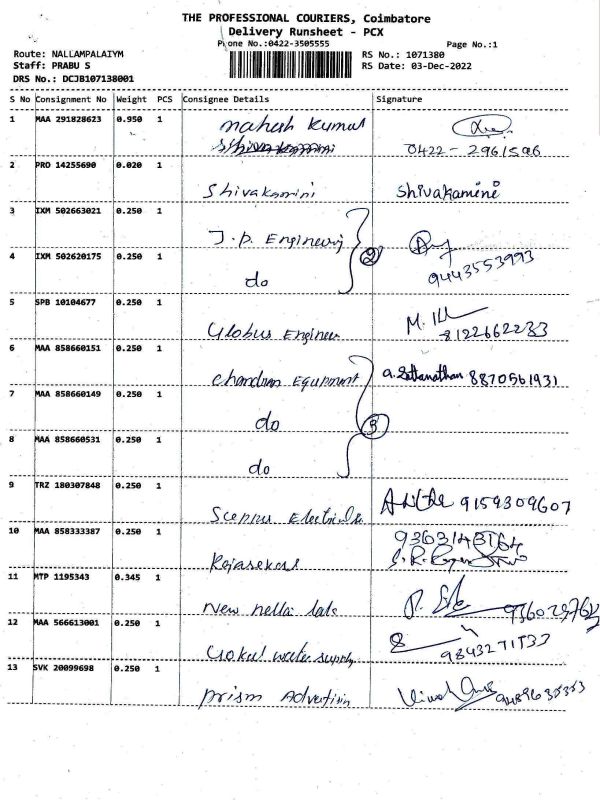 THE PROFESSIONAL COURIERS, Coimbatore
Delivery Runsheet - PCX
Phone No.:0422-3505555
Page No.:1
Route: NALLAMPALAIYM
RS No.: 1071380
Staff: PRABU S
RS Date: 03-Dec-2022
DRS No.: DCJB107138001
S No Consignment No Weight PCS Consignee Details Signature
1 MAA 291828623 0.950 1 Mahesh Kumar
0422 - 2961596
2 PRO 14255690 0.020 1 Shivakamini Shivakamini
3 IXM 502663021 0.250 1 J.P. Engineering
4 IXM 502620175 0.250 1 do 2 9443553993
5 SPB 10104677 0.250 1 Globus Engineer M.
8122662233
6 MAA 858660151 0.250 1 Chandran Equipment a. Sattanathan 8870561931
7 MAA 858660149 0.250 1 do 3
8 MAA 858660531 0.250 1 do
9 TRZ 180307848 0.250 1 9159309607
10 MAA 858333387 0.250 1 Rajasekar 9363143164
11 MTP 1195343 0.345 1 New nellai
12 MAA 566613001 0.250 1 Gokul water supply
13 SVK 20099698 0.250 1 Prism